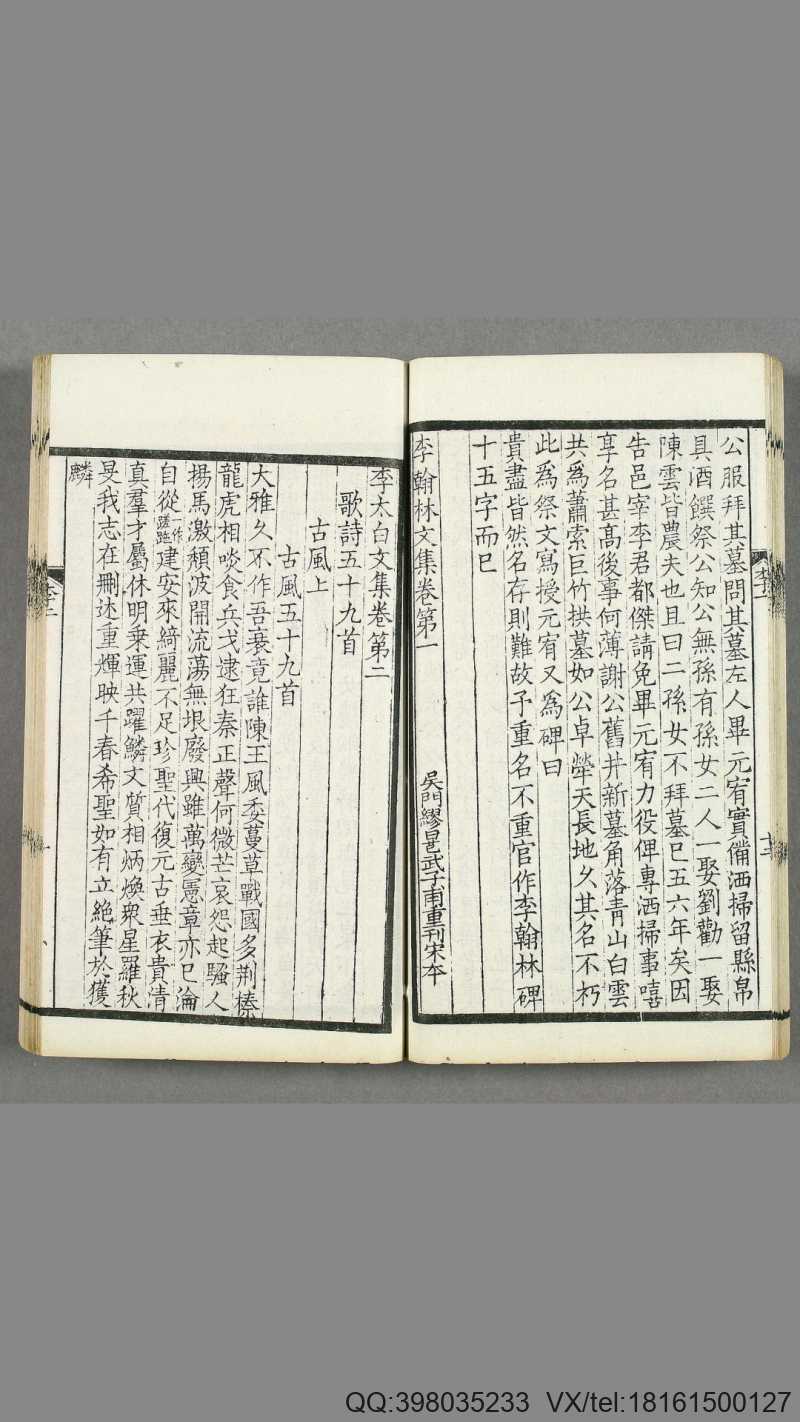 公服拜其墓問其墓左人畢元宥實備洒掃留縣帛
具酒饌祭公知公無孫有孫女二人一娶劉勸一娶
陳雲皆農夫也且曰二孫女不拜墓已五六年矣因
告邑宰李君都傑請免畢元宥力役俾專洒掃事嘻
享名甚髙後事何薄謝公舊井新墓角落青山白雲
共為蕭索巨竹拱墓如公卓犖天長地久其名不朽
此為祭文寫授元宥又為碑曰
貴盡皆然名存則難故予重名不重官作李翰林碑
十五字而已
李翰林文集卷第一
吳門繆曰芑武子甫重刊宋本
李太白文集卷第二
歌詩五十九首
古風上
古風五十九首
大雅久不作吾衰竟誰陳王風委蔓草戰國多荆榛
龍虎相啖食兵戈逮狂秦正聲何微茫哀怨起騷人
揚馬激頹波開流蕩無垠廢興雖萬變憲章亦已淪
自從一作蹉跎建安來綺麗不足珍聖代復元古垂衣貴清
真羣才屬休明乗運共躍鱗文質相炳煥衆星羅秋
旻我志在刪述重輝映千春希聖如有立絶筆於獲
麟
QQ:398035233 VX/tel:18161500127